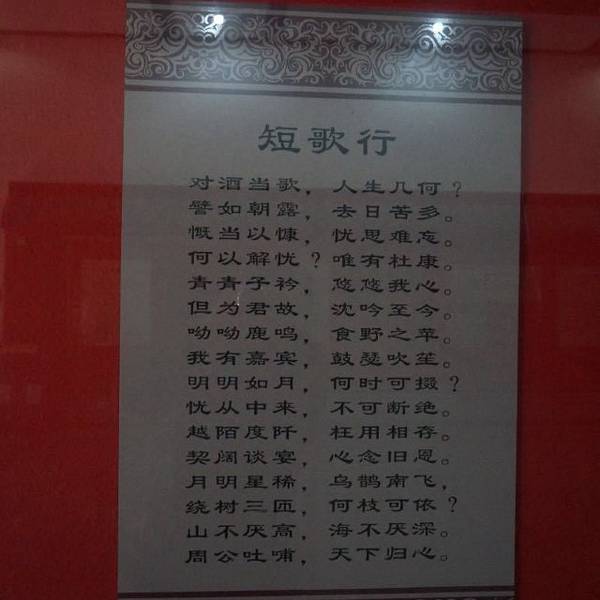 短歌行
对酒当歌，人生几何？
譬如朝露，去日苦多。
慨当以慷，忧思难忘。
何以解忧？唯有杜康。
青青子衿，悠悠我心。
但为君故，沈吟至今。
呦呦鹿鸣，食野之苹。
我有嘉宾，鼓瑟吹笙。
明明如月，何时可掇？
忧从中来，不可断绝。
越陌度阡，枉用相存。
契阔谈宴，心念旧恩。
月明星稀，乌鹊南飞，
绕树三匝，何枝可依？
山不厌高，海不厌深。
周公吐哺，天下归心。